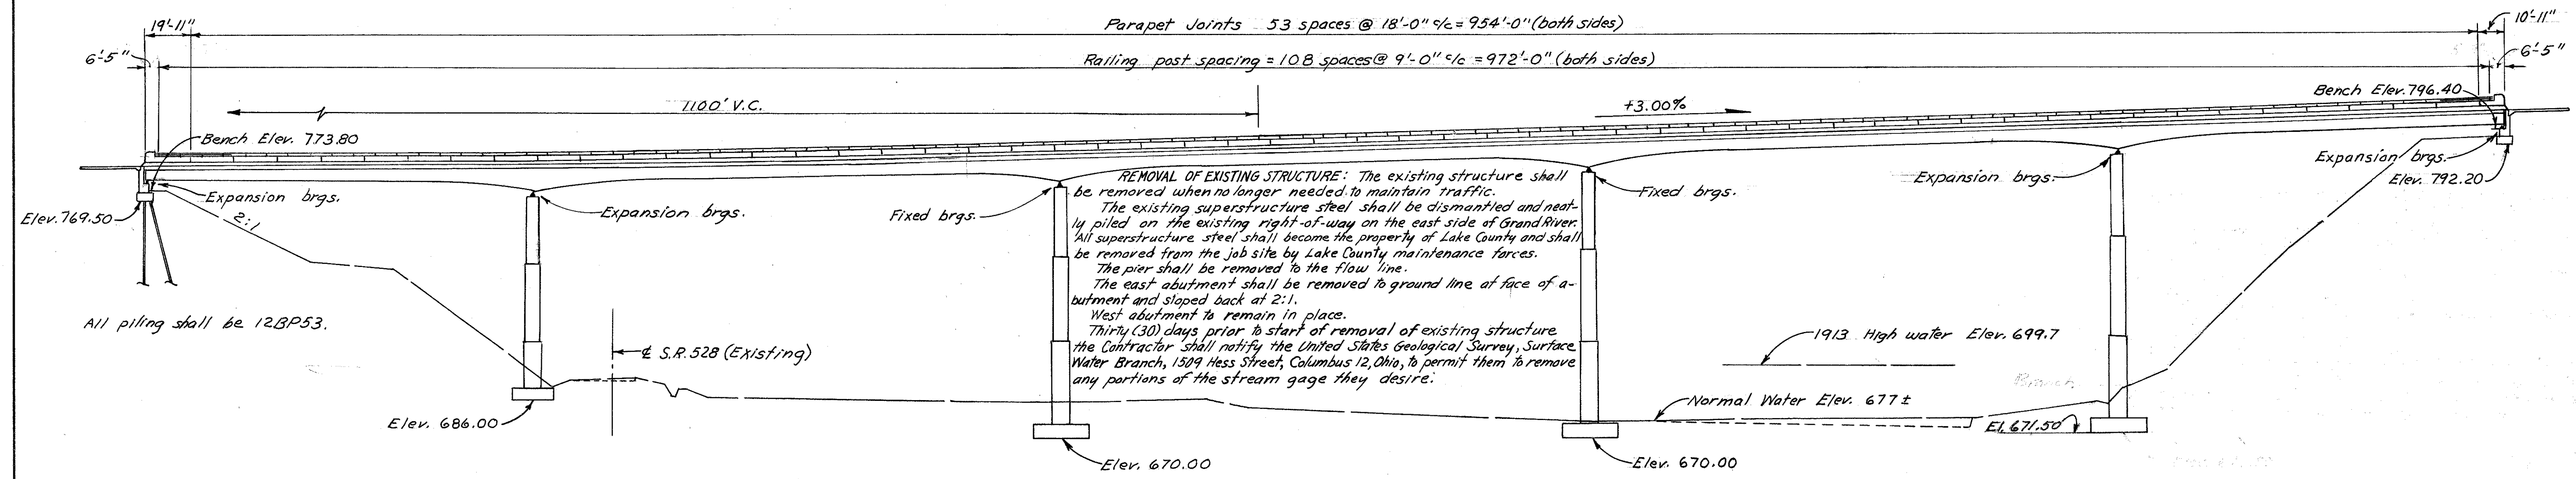 19'-11"
Parapet Joints 53 spaces @ 18'-0" c/c = 954'-0" (both sides)
10'-11"
6'-5"
Railing post spacing = 108 spaces @ 9'-0" c/c = 972'-0" (both sides)
6'-5"
1100' V.C.
+3.00%
Bench Elev. 796.40
Bench Elev. 773.80
Expansion brgs.
Elev. 769.50
2:1
Expansion brgs.
Fixed brgs.
Fixed brgs.
Expansion brgs.
Expansion brgs.
Elev. 792.20
REMOVAL OF EXISTING STRUCTURE: The existing structure shall
be removed when no longer needed to maintain traffic.
The existing superstructure steel shall be dismantled and neat-
ly piled on the existing right-of-way on the east side of Grand River.
All superstructure steel shall become the property of Lake County and shall
be removed from the job site by Lake County maintenance forces.
The pier shall be removed to the flow line.
The east abutment shall be removed to ground line at face of a-
butment and sloped back at 2:1.
West abutment to remain in place.
Thirty (30) days prior to start of removal of existing structure
the Contractor shall notify the United States Geological Survey, Surface
Water Branch, 1509 Hess Street, Columbus 12, Ohio, to permit them to remove
any portions of the stream gage they desire.
All piling shall be 12BP53.
℄ S.R. 528 (Existing)
1913 High water Elev. 699.7
Normal Water Elev. 677 ±
Elev. 686.00
El. 671.50
Elev. 670.00
Elev. 670.00